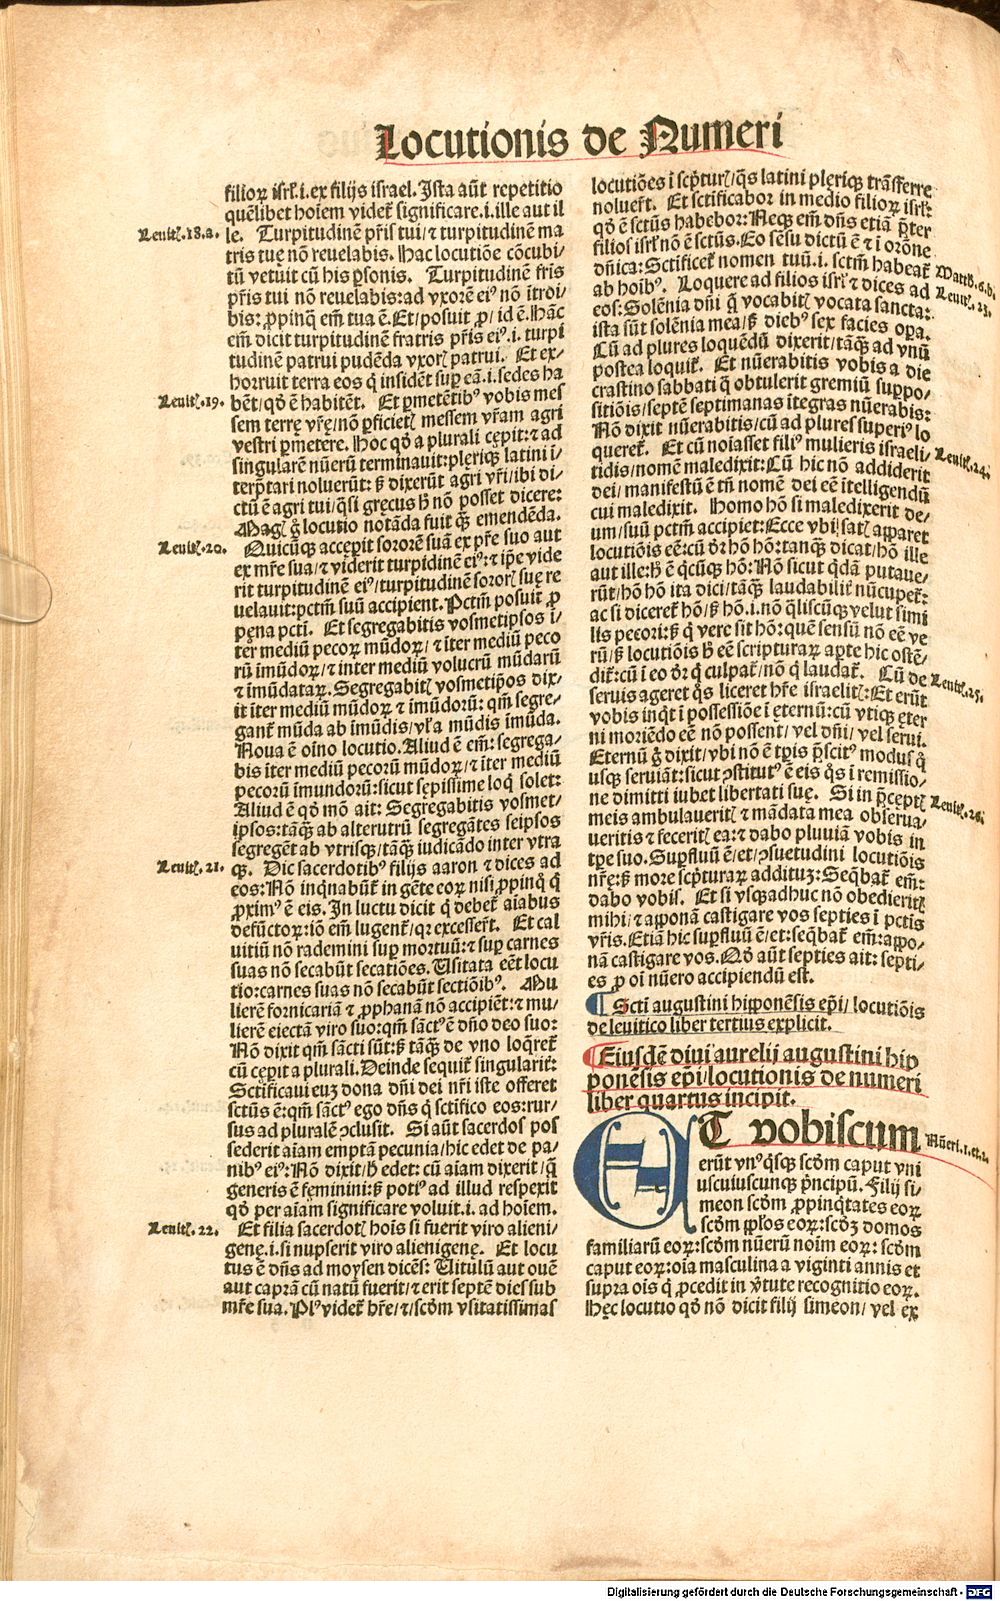 Locutionis de Numeri
filioꝝ isrł.i.ex filijs israel. Ista aūt repetitio
quēlibet hoīem videt̄ significare.i.ille aut il
Leuitꝭ.18.a.
le. Turpitudinē p̄ris tui/⁊ turpitudinē ma
tris tuę nō reuelabis. Hac locutiōe cōcubi/
tū vetuit cū his ꝑsonis. Turpitudinē fris
p̄ris tui nō reuelabis:ad vxorē eiꝰ nō ītroi/
bis: ꝓpinq̄ em̄ tua ē. Et/posuit ꝓ/ id ē. Hāc
em̄ dicit turpitudinē fratris p̄ris eiꝰ.i. turpi
tudinē patrui pudēda vxorꝭ patrui. Et ex/
horruit terra eos q̇ insidēt suꝑ eā.i.sedes ha
Leuitꝭ.19.
bēt/qḋ ē habitēt. Et ꝑmetētibꝰ vobis mes
sem terrę vr̄ę/nō ꝑficietꝭ messem vr̄am agri
vestri ꝑmetere. Hoc qḋ a plurali cępit:⁊ ad
singularē nūerū terminauit:plęriqꝫ latini i/
terp̄tari noluerūt: ꝫ dixerūt agri vr̄i/ibi di/
ctū ē agri tui/q̄si gręcus h̄ nō posset dicere:
Magꝭ g̊ locutio notāda fuit qꝫ emendēda.
Leuitꝭ.20.
Quicūqꝫ acceperit sororē suā ex p̄re suo aut
ex mr̄e sua/⁊ viderit turpidinē eiꝰ:⁊ ip̄e vide
rit turpitudinē eiꝰ/turpitudinē sororꝭ suę re
uelauit:pctm̄ suū accipient. Pctm̄ posuit ꝓ
pęna pcti. Et segregabitis vosmetipsos ī/
ter mediū pecorꝝ mūdoꝝ/⁊ īter mediū peco
rū imūdoꝝ/⁊ inter mediū volucrū mūdarū
⁊ imūdataꝝ. Segregabitꝭ vosmetip̄os dix/
it īter mediū mūdoꝝ ⁊ imūdorū: qm̄ segre/
gant̄ mūda ab imūdis/vł a mūdis imūda.
Noua ē oīno locutio. Aliud ē em̄: segrega/
bis īter mediū pecorū mūdoꝝ/⁊ īter mediū
pecorū imundorū:sicut sępissime loq̇ solet:
Aliud ē qḋ mō ait: Segregabitis vosmet/
ipsos:tāqꝫ ab alterutrū segregātes seipsos
segregēt ab vtrisqꝫ/tāqꝫ iudicādo inter vtra
Leuitꝭ.21.
qꝫ. Dic sacerdotibꝰ filijs aaron ⁊ dices ad
eos: Nō inq̇nabūt̄ in gēte eoꝝ nisi ꝓpinq̇ q̇
ꝓximꝰ ē eis. In luctu dicit q̇ debet̄ aīabus
defūctoꝝ:iō em̄ lugent̄/qꝛ excessert̄. Et cal
uitiū nō rademini suꝑ mortuū:⁊ suꝑ carnes
suas nō secabūt secatiōes. Usitata eēt locu
tio:carnes suas nō secabūt sectiōibꝰ. Mu
lierē fornicariā ⁊ ꝓphanā nō accipiēt:⁊ mu/
lierē eiectā viro suo:qm̄ sāctꝰ ē dn̄o deo suo:
Nō dixit qm̄ sācti sūt:ꝫ tāqꝫ de vno loq̇ret̄
cū cępit a plurali. Deinde sequit̄ singularit̄:
Sctificaui euꝫ dona dn̄i dei nr̄i iste offeret
sctūs ē:qm̄ sāctꝰ ego dn̄s q̇ sctifico eos:rur/
sus ad pluralē ꝯclusit. Si aūt sacerdos pos
sederit aīam emptā pecunia/hic edet de pa/
nibꝰ eiꝰ: Nō dixit/h̄ edet: cū aīam dixerit/q̄
generis ē fęminini:ꝫ potiꝰ ad illud respexit
qḋ per aīam significare voluit.i. ad hoīem.
Leuitꝭ. 22.
Et filia sacerdotꝭ hoīs si fuerit viro alieni/
genę.i.si nupserit viro alienigenę. Et locu
tus ē dn̄s ad moysen dicēs: Uitulū aut ouē
aut caprā cū natū fuerit/⁊ erit septē dies sub
mr̄e sua. Plꝰ videt̄ hr̄e/⁊/scḋm vsitatissimas
locutiōes i scp̄turꝭ/q̄s latini plęriqꝫ trāsferre
noluert̄. Et sctificabor in medio filioꝝ isrł:
qḋ ē sctūs habebor: Neqꝫ em̄ dn̄s etiā p̄ter
filios isrł nō ē sctūs. Eo sēsu dictū ē ⁊ i orōne
Matth.6.b.
dn̄ica: Sctificet̄ nomen tuū.i. sctm̄ habeat̄
ab hoībꝰ. Loquere ad filios isrł ⁊ dices ad
Leuitꝭ.23.
eos: Solēnia dn̄i q̄ vocabitꝭ vocata sancta:
ista sūt solēnia mea/ꝫ diebꝰ sex facies oꝑa.
Cū ad plures loquēdū dixerit/tāqꝫ ad vnū
postea loquit̄. Et nūerabitis vobis a die
crastino sabbati q̇ obtulerit gremiū suppo/
sitiōis/septē septimanas īTegras nūerabis:
Nō dixit nūerabitis/cū ad plures superiꝰ lo
queret̄. Et cū noīasset filiꝰ mulieris israeli/
Leuitꝭ.24.
tidis/nomē maledixit: Cū hic nō addiderit
dei/ manifestū ē tn̄ nomē dei eē ītelligendū
cui maledixit. Homo hō si maledixerit de/
um/suū pctm̄ accipiet: Ecce vbi satꝭ apparet
locutiōis eē:cū dr̄ hō hō:tanqꝫ dicat/hō ille
aut ille:h̄ ē q̇cūqꝫ hō: Nō sicut q̇dā putaue/
rūt/hō hō ita dici/tāqꝫ laudabilit̄ nūcupet̄:
ac si diceret hō/ꝫ hō.i.nō q̄liscūqꝫ velut simi
lis pecori:ꝫ q̇ vere sit hō: quē sensū nō eē ve
rū/ꝫ locutiōis h̄ eē scripturaꝝ aperte hic ostē/
dit̄:cū i eo dr̄ q̇ culpat̄/nō q̇ laudat̄. Cū de
Leuitꝭ.25.
seruis ageret q̄s liceret hr̄e israelitꝭ: Et erūt
vobis inq̇t i possessiōe i ęternū:cū vtiqꝫ ęter
ni moriēdo eē nō possent/vel dn̄i/vel serui.
Eternū g̊ dixit/vbi nō ē tꝑis p̄scitꝰ modus q̇
usqꝫ seruiāt:sicut ꝯstitutꝰ ē eis q̄s i remissio/
ne dimitti iubet libertati suę. Si in p̄ceptꝭ
Leuitꝭ.26.
meis ambulaueritꝭ ⁊ mādata mea obserua/
ueritis ⁊ feceritꝭ ea:⁊ dabo pluuiā vobis in
tꝑe suo. Suꝑfluū ē/et/ꝯsuetudini locutiōis
nr̄ę:ꝫ more scp̄turaꝝ additūꝫ: Seq̄bat̄ em̄:
dabo vobis. Et si vsqꝫadhuc nō obedieritꝭ
mihi/⁊ apponā castigare vos septies i pctis
vr̄is. Etiā hic suꝑfluū ē/et:seq̄bat̄ em̄:appo/
nā castigare vos. Qḋ aūt septies ait: septi/
es ꝓ oī nūero accipiendū est.
¶ Scti augustini hipponēsis ep̄i/ locutiōis
de leuitico liber tertius explicit.
¶ Eiusdē diui aurelij augustini hip
ponēsis ep̄i/locutionis de numeri
liber quartus incipit.
ET vobiscum
Nūeri.1.et.2.
erūt vnꝰ q̇sqꝫ scḋm caput vni
uscuiuscunqꝫ p̄ncipū. Filij si/
meon scḋm ꝓpinq̇tates eoꝝ
scḋm pp̄los eoꝝ:scḋꝫ domos
familiarū eoꝝ:scḋm nūerū noīm eoꝝ: scḋm
caput eoꝝ:oīa masculina a viginti annis et
supra oīs q̇ ꝓcedit in v̄tute recognitio eoꝝ.
Hęc locutio qḋ nō dicit filij simeon/ vel ex
Digitalisierung gefördert durch die Deutsche Forschungsgemeinschaft - DFG